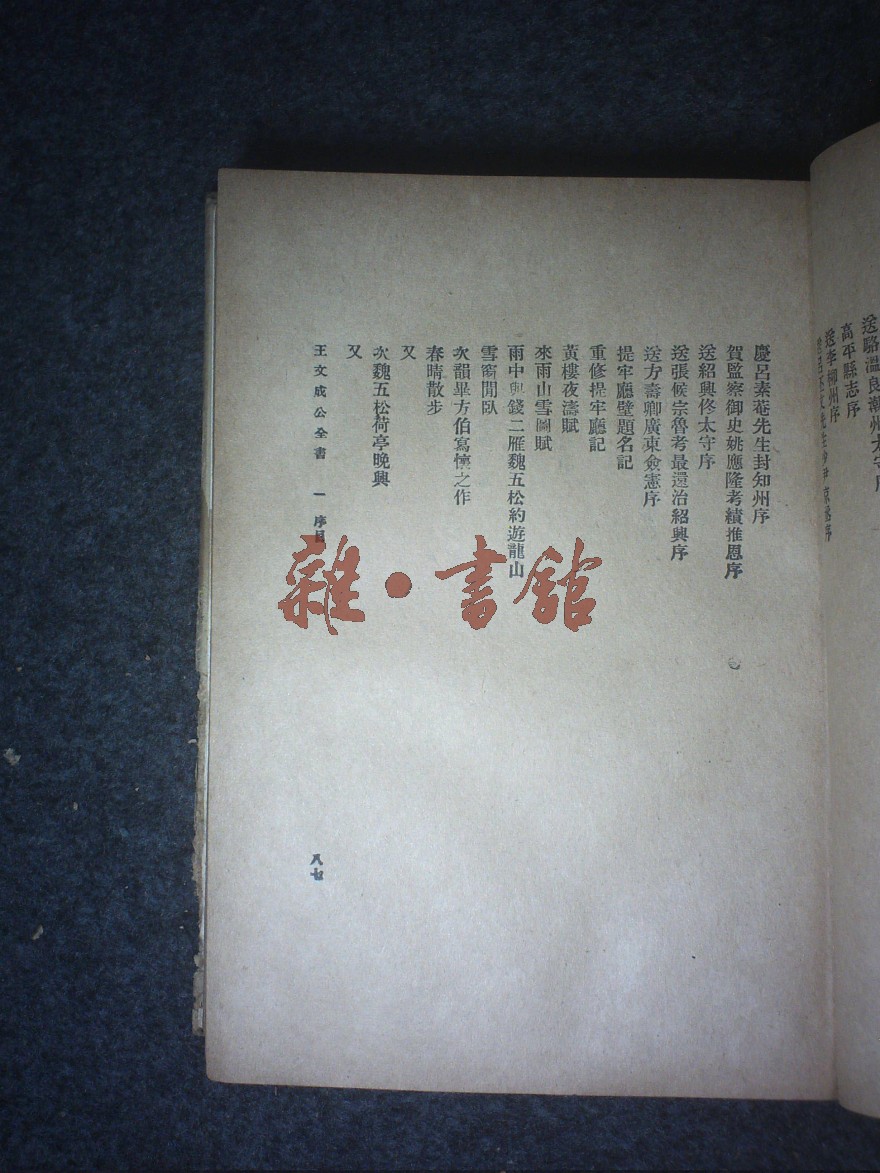 送駱溫良潮州太守序
高平縣志序
送李柳州序
慶呂素菴先生封知州序
賀監察御史姚應隆考績推恩序
送紹興佟太守序
送張侯宗魯考最還治紹興序
送方壽卿廣東僉憲序
提牢廳壁題名記
重修提牢廳記
黃樓夜濤賦
來雨山雪圖賦
雨中與錢二雁魏五松約遊龍山
雪窗閒臥
次韻畢方伯寫懷之作
春晴散步
又
次魏五松荷亭晚興
又
王文成公全書 一 序目
八七
雜·書館